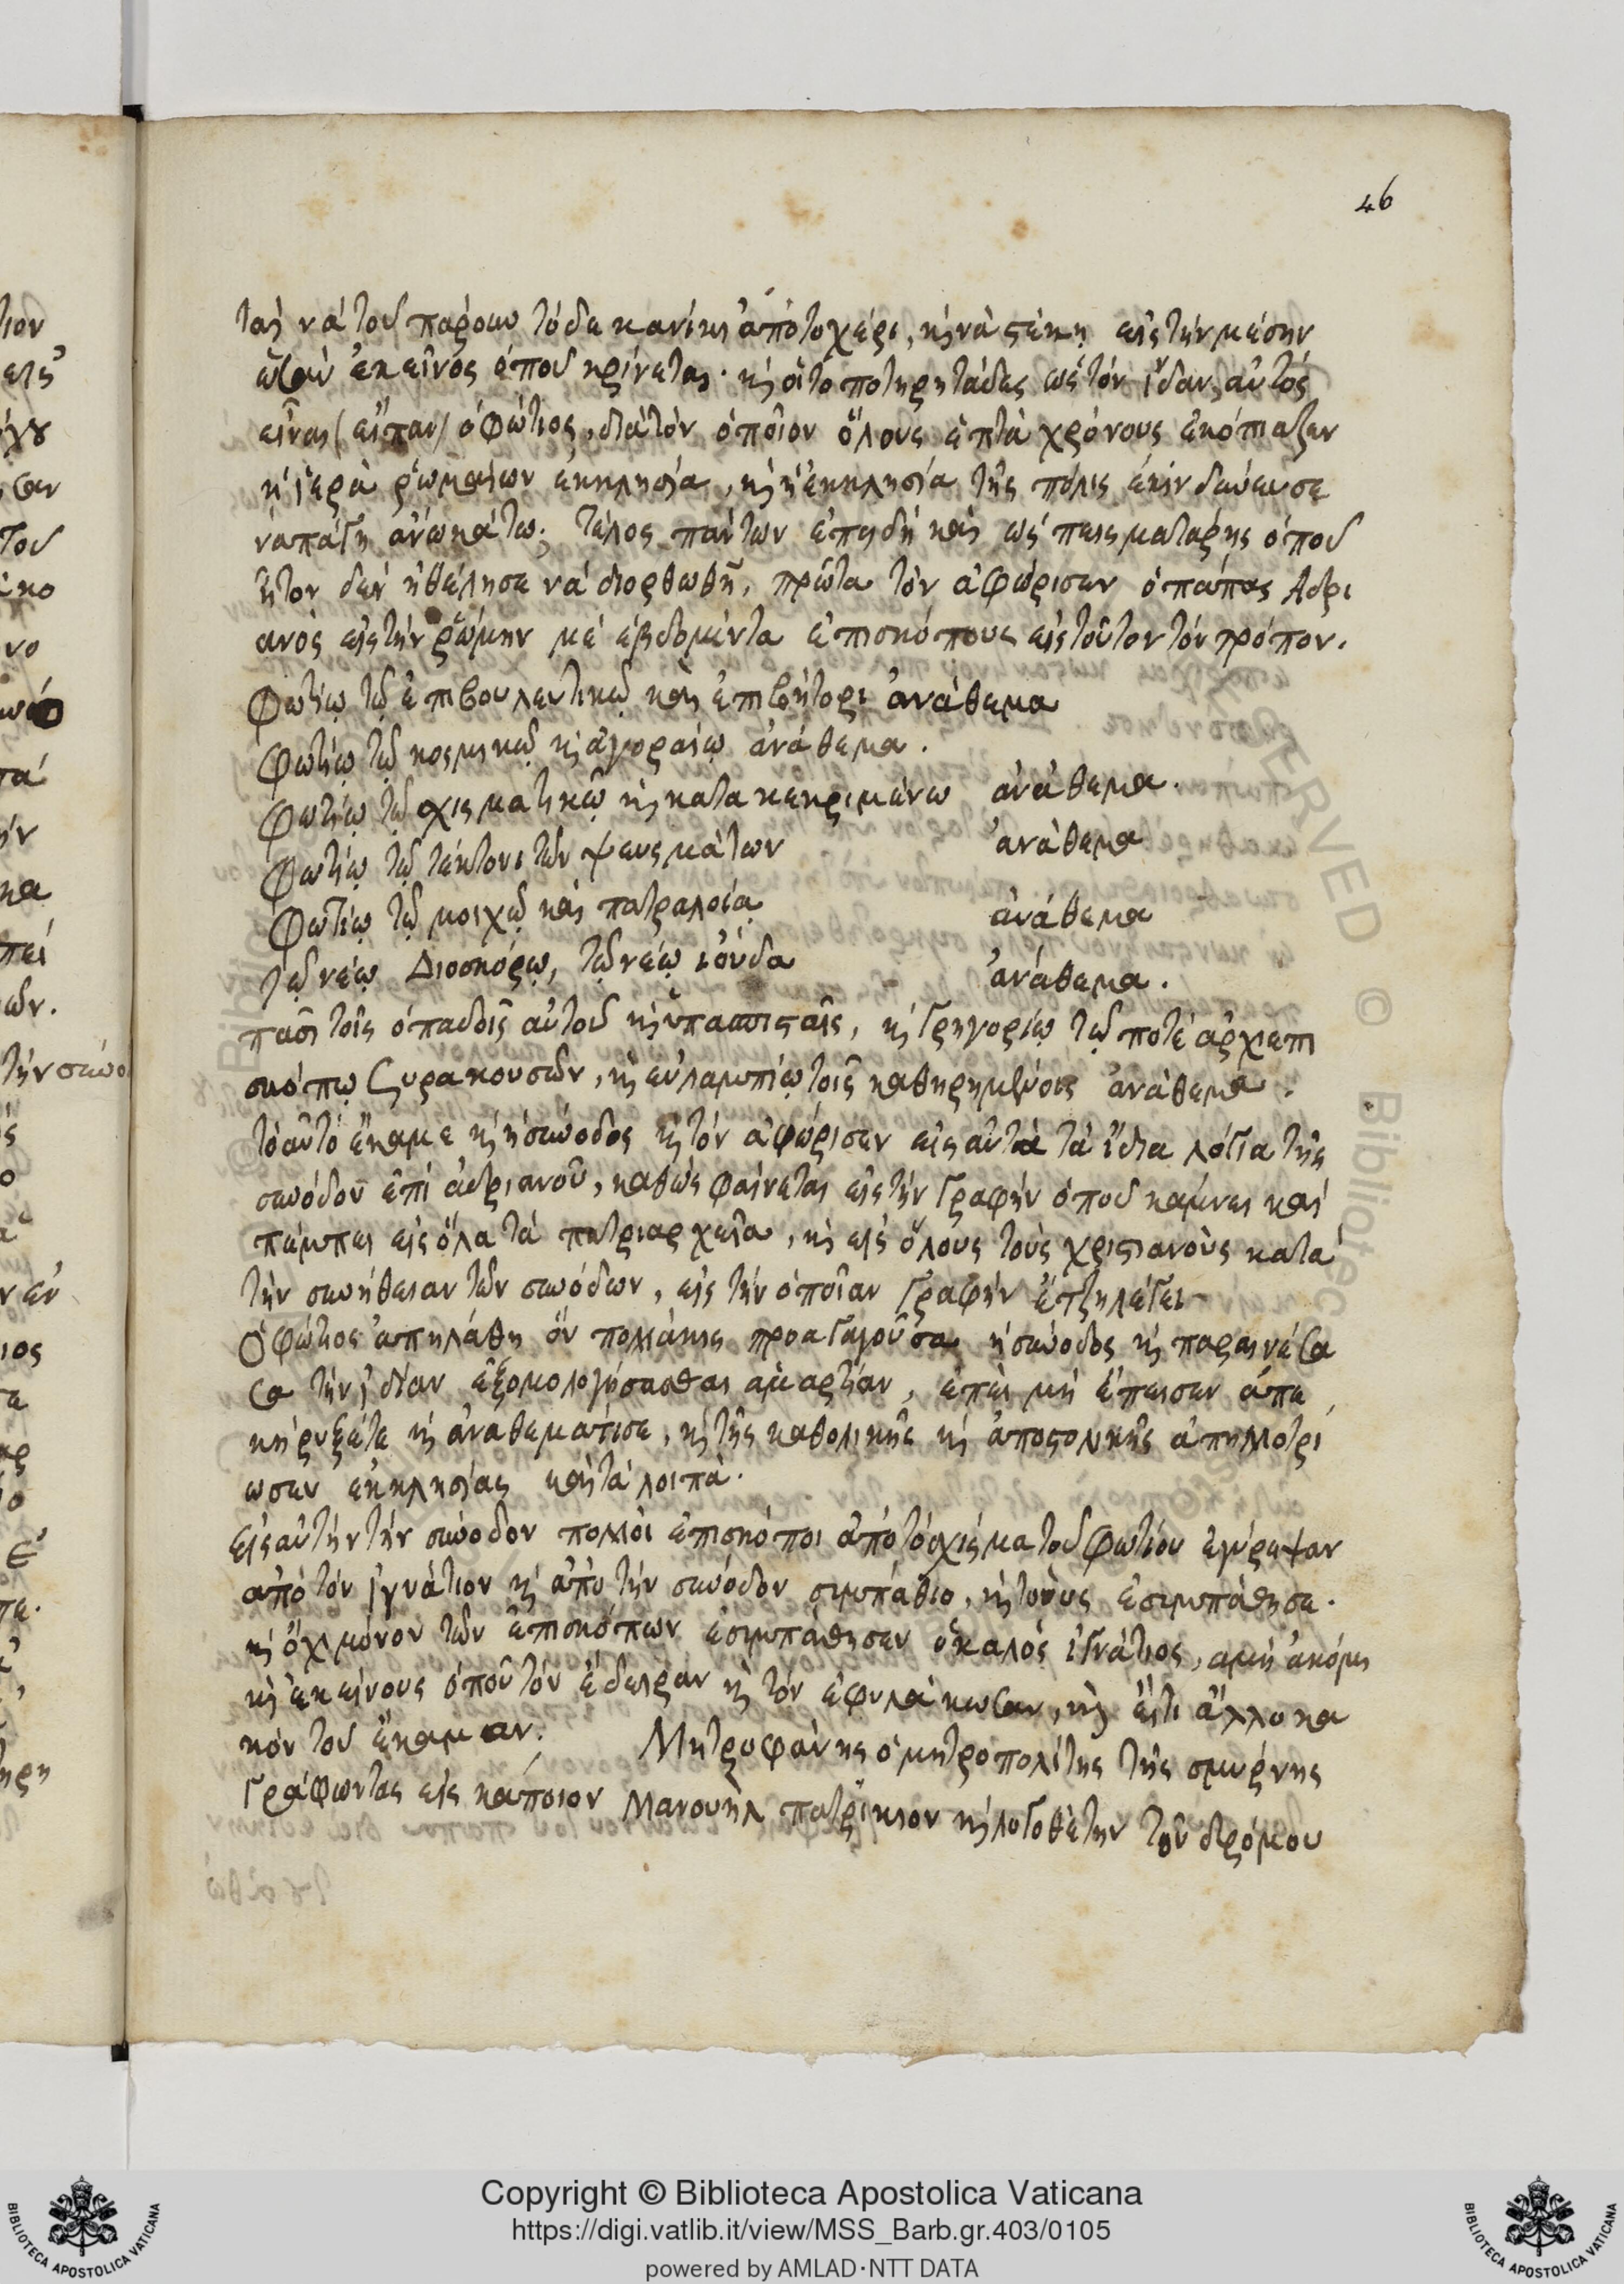 46
ται νά τοῦ πάρουν τό δεκανίκι ἀπό τοχέρι, κὶ νὰ στέκη εἰς τήν μέσην
ὡσάν ἐκεῖνος ὁποῦ κρίνεται· κὶ οἱ τοποτηρητάδες ὡς τόν ἴδαν, αὐτός
εἶναι (εἶπαν) ὁ φώτιος, διὰ τόν ὁποῖον ὅλους ἑπτὰ χρόνους ἐκόπιαζεν
ἡ ἱερὰ ῥωμαίων ἐκκλησία, κὶ ἡ ἐκκλησία τῆς πόλις ἐκινδεύευσε
νὰ πάγη ἀνωκάτω; τέλος πάντων ἐπειδή καὶ ὡς πεισματάρης ὁποῦ
ἦτον δεν ἠθέλησε νά διορθωθῆ, πρῶτα τόν ἀφώρισεν ὁ πάπας Αδρι
ανός εἰς τήν ῥώμην μέ ἑβδομῆντα ἐπισκόπους εἰς τοῦτον τόν τρόπον.
Φωτίῳ τῷ ἐπιβουλευτικῷ καὶ ἐπιβήτορι ἀνάθεμα
Φωτίῳ τῷ κοσμικῷ κὶ ἀγοραίῳ ἀνάθεμα.
Φωτίῳ τῷ σχισματικῷ κὶ κατακεκριμένω ἀνάθεμα.
Φωτίῳ τῷ τέκτονι τῶν ψευσμάτων ἀνάθεμα
Φωτίῳ τῷ μοιχῷ καὶ πατραλοίᾳ ἀνάθεμα
τῷ νέῳ Διοσκόρῳ, τῷ νέῳ ἰούδα ἀνάθεμα.
πᾶσι τοῖς ὀπαδοῖς αὐτοῦ κὶ ὑπασπισταῖς, κὶ Γρηγορίῳ τῷ ποτέ ἀρχιεπι
σκόπῳ Συρακουσῶν, κὶ εὐλαμπίῳ τοῖς καθηρημένοις ἀνάθεμα.
τὸ αὐτό ἔκαμε κὶ ἡ σύνοδος κὶ τόν ἀφώρισεν εἰς αὐτὰ τὰ ἴδια λόγια τῆς
συνόδου ἐπί ἀδριανοῦ, καθὼς φαίνεται εἰς τήν Γραφήν ὁποῦ κάμνει καί
πέμπει εἰς ὅλα τά πατριαρχεῖα, κὶ εἰς ὅλους τοὺς χριστιανοὺς κατά
τήν συνήθειαν τῶν συνόδων, εἰς τήν ὁποῖαν Γραφήν ἔτζη λέγει
Ὁ φώτιος ἀπηλάθη ὅν πολλάκις προαγαγοῦσα ἡ σύνοδος κὶ παραινέσα
σα τήν ἰδίαν ἐξομολογήσασθαι ἁμαρτίαν, ἐπεί μή ἔπεισεν ἀπε
κήρυξέτε κὶ ἀναθεμάτισε, κὶ τῆς καθολικῆς κὶ ἀποστολικῆς ἀπηλλοτρί
ωσεν ἐκκλησίας καὶ τὰ λοιπά.
Εἰς αὐτήν τήν σύνοδον πολλοὶ ἐπισκόποι ἀπό τό σχίσμα τοῦ Φωτίου ἐγύρεψαν
ἀπό τόν ἰγνάτιον κὶ ἀπό τήν σύνοδον συμπάθιο, κὶ τοὺς ἐσυμπάθησε.
κὶ ὄχι μόνον τῶν ἐπισκόπων ἐσυμπάθησεν ὁ καλός ἰγνάτιος, αμή ἀκόμι
κὶ ἐκείνους ὁποῦ τόν ἔδειραν κὶ τόν ἐφυλάκωσαν, κὶ ἔιτι ἄλλο κα
κόν τοῦ ἔκαμαν. Μητροφάνης ὁ μητροπολίτης τῆς σμύρνης
Γράφωντας εἰς κάποιον Μανουήλ πατρίκιον κὶ λογοθέτην τοῦ δρόμου
Copyright © Biblioteca Apostolica Vaticana
https://digi.vatlib.it/view/MSS_Barb.gr.403/0105
powered by AMLAD·NTT DATA